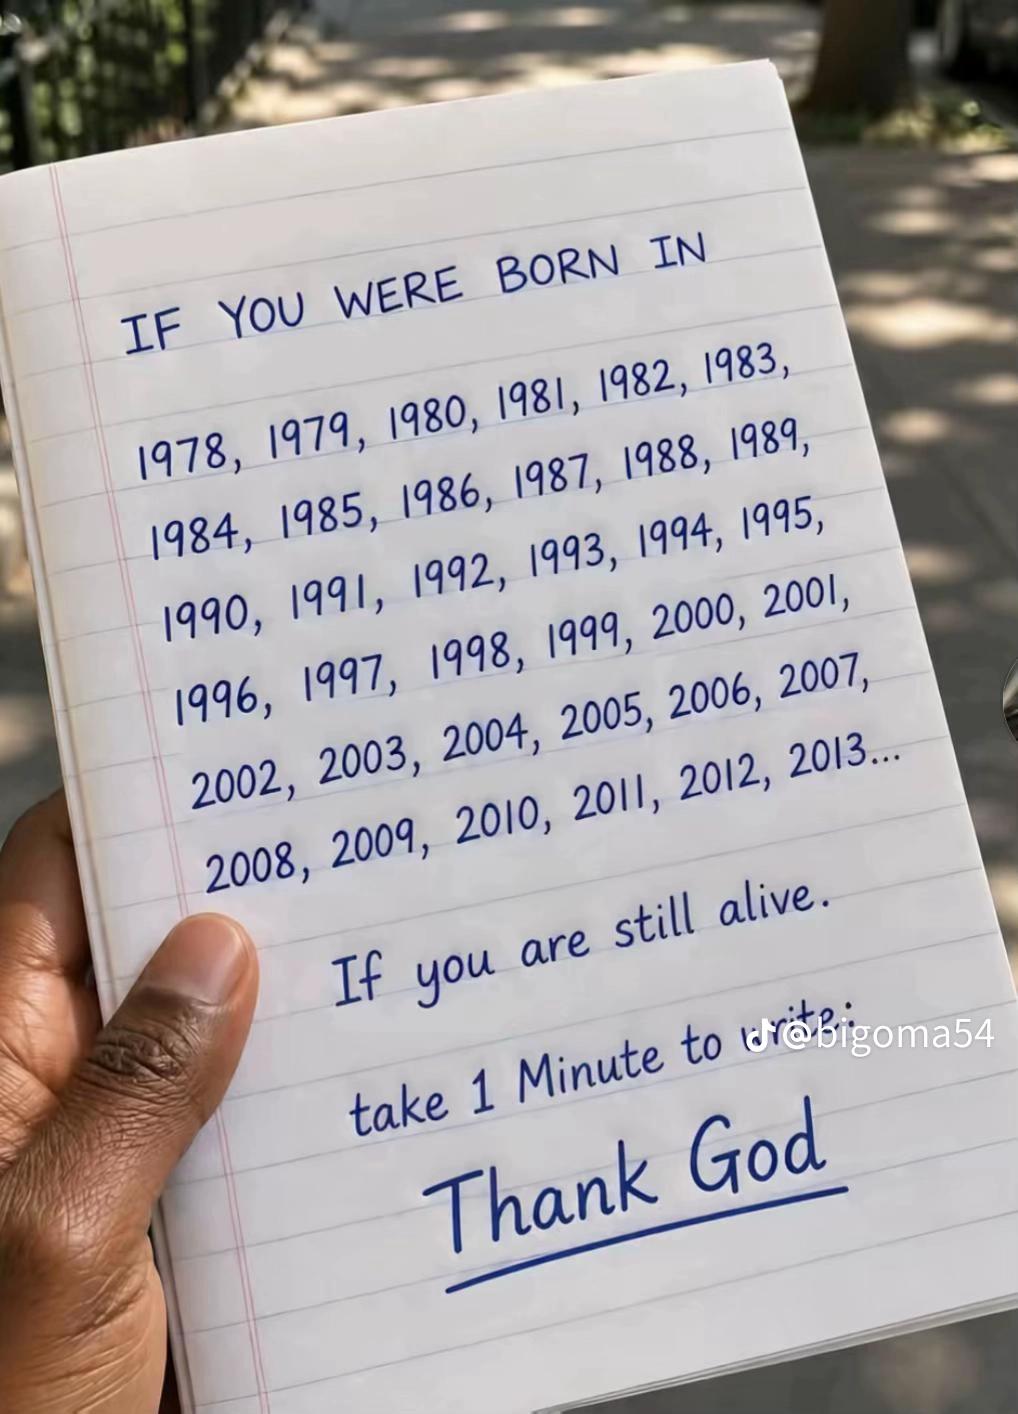 IF YOU WERE BORN IN
1978, 1979, 1980, 1981, 1982, 1983,
1984, 1985, 1986, 1987, 1988, 1989,
1990, 1991, 1992, 1993, 1994, 1995,
1996, 1997, 1998, 1999, 2000, 2001,
2002, 2003, 2004, 2005, 2006, 2007,
2008, 2009, 2010, 2011, 2012, 2013...
If you are still alive.
take 1 Minute to write:
@bigoma54
Thank God